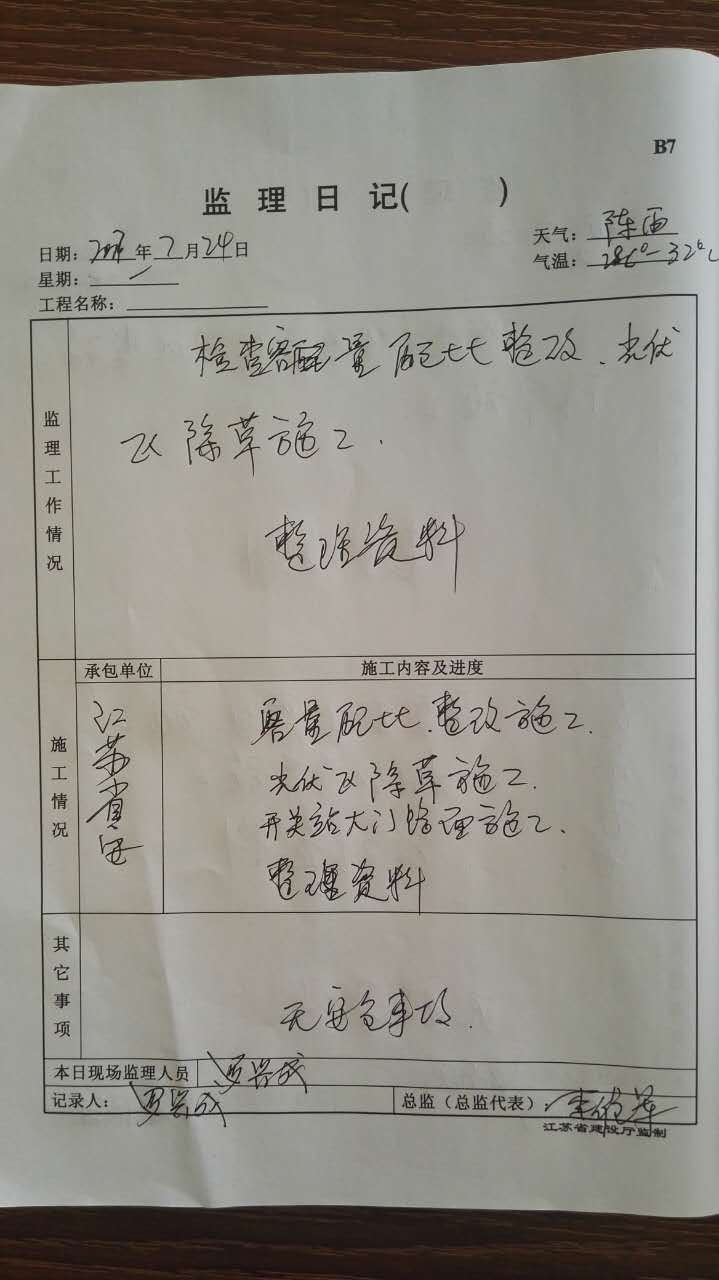 B7
监 理 日 记( )
日期: 年 7 月 24 日
天气: 阵雨
星期: 一
气温: 28℃-32℃
工程名称:
监理工作情况
检查容量配比整改、光伏
区除草施工.
整理资料
施工情况
承包单位
施工内容及进度
江苏
容量配比、整改施工.
光伏区除草施工.
开关站大门修理施工.
整理资料
其它事项
无安全事故.
本日现场监理人员 罗兴成
记录人: 罗兴成
总监(总监代表):
江苏省建设厅监制